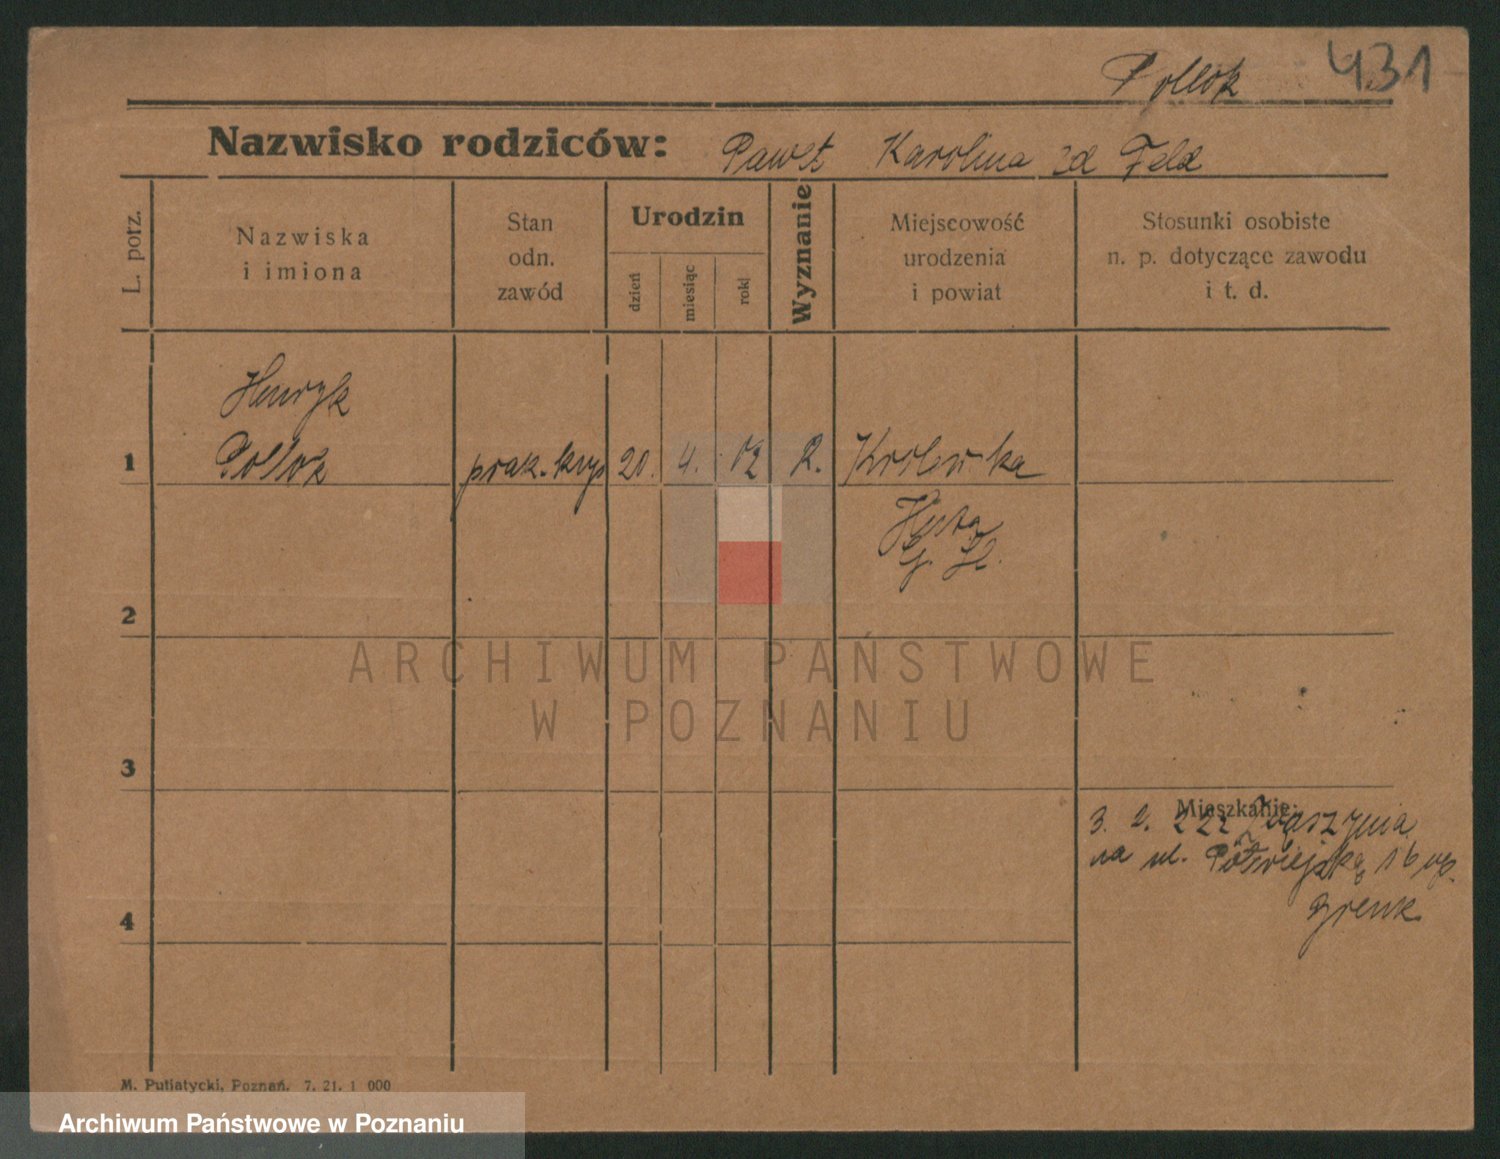 Pollok 431
Nazwisko rodziców: Paweł Karolina zd Feld
L. porz.
Nazwiska
i imiona
Stan
odn.
zawód
Urodzin
dzień
miesiąc
rok
Wyznanie
Miejscowość
urodzenia
i powiat
Stosunki osobiste
n. p. dotyczące zawodu
i t. d.
Henryk
1 Pollok prak. kup 20. 4. 02 R. Królewska
Huta
G. Śl.
2
ARCHIWUM PAŃSTWOWE
W POZNANIU
3
Mieszkanie:
3. 2. 222 Zbąszynia
na ul. Półwiejską 16 up.
4
M. Putiatycki, Poznań. 7. 21. 1 000
Archiwum Państwowe w Poznaniu